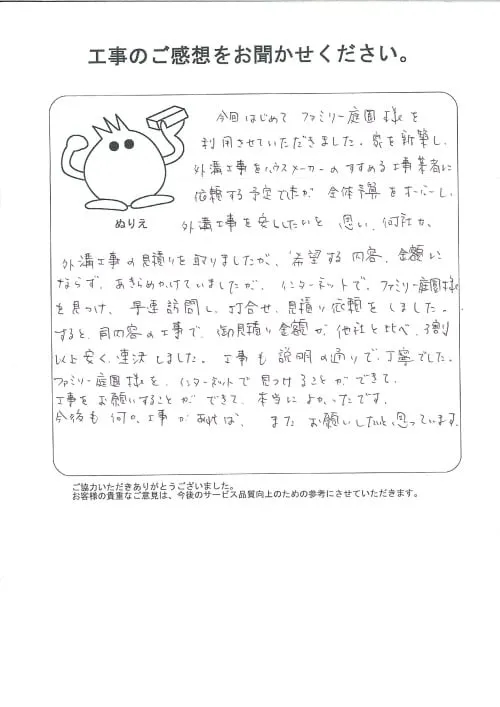 工事のご感想をお聞かせください。
今回はじめて ファミリー庭園様を
利用させていただきました。家を新築し、
外溝工事をハウスメーカーのすすめる工事業者に
依頼する予定でしたが 全体予算をオーバーし、
ぬりえ
外溝工事を安くしたいと思い、何社か、
外溝工事の見積りを取りましたが、希望する内容、金額に
ならず、あきらめかけていましたが、インターネットで、ファミリー庭園様
を見つけ、早速訪問し、打合せ、見積り依頼をしました。
すると、同内容の工事で、御見積り金額が、他社と比べ、3割
以上安く、速決しました。工事も説明の通りで、丁寧でした。
ファミリー庭園様を、インターネットで見つけることができて、
工事をお願いすることができて、本当によかったです。
今後も何か、工事があれば、またお願いしたいと思っています。
ご協力いただきありがとうございました。
お客様の貴重なご意見は、今後のサービス品質向上のための参考にさせていただきます。